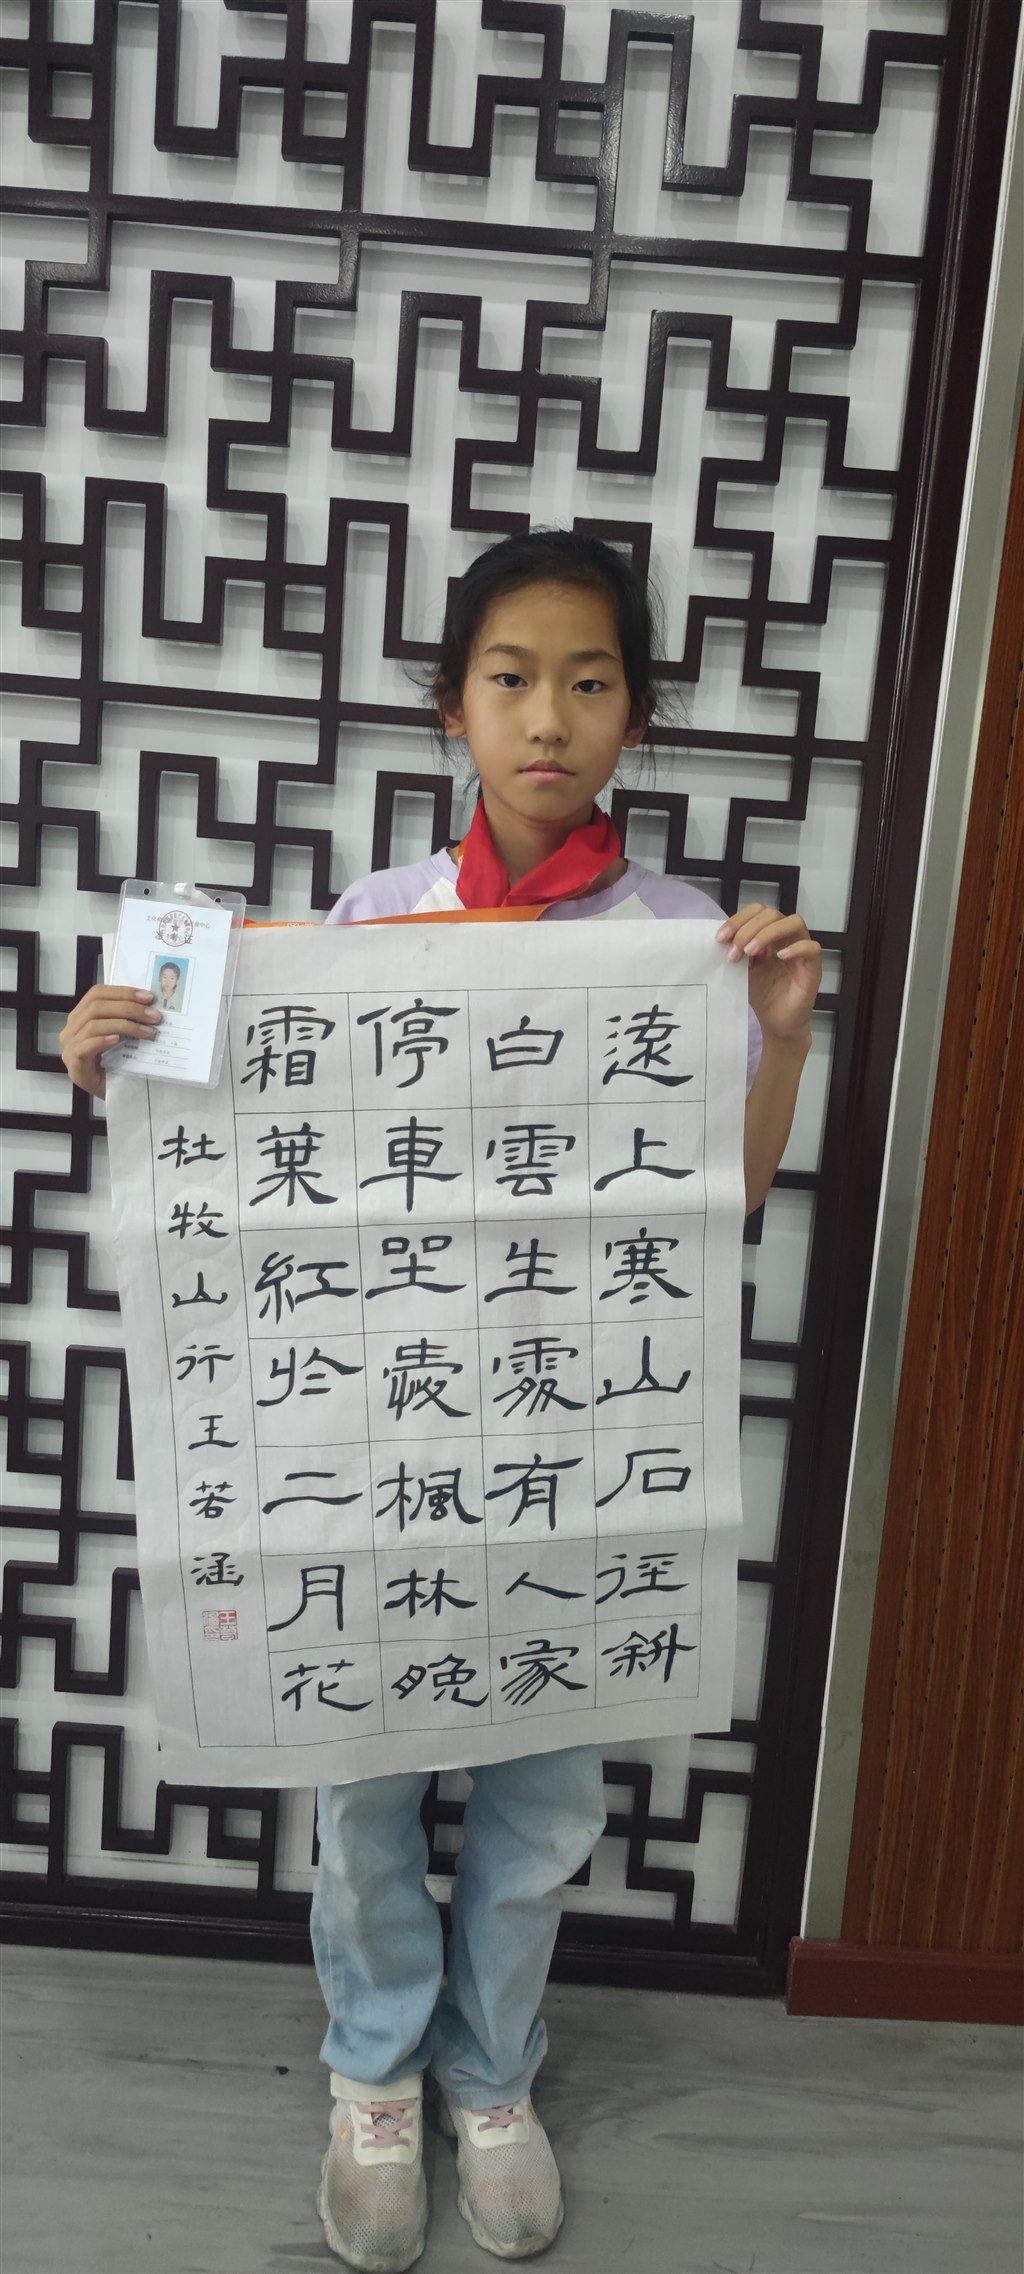 遠上寒山石徑斜
白雲生處有人家
停車坐愛楓林晚
霜葉紅於二月花
杜牧山行王若涵
准考证